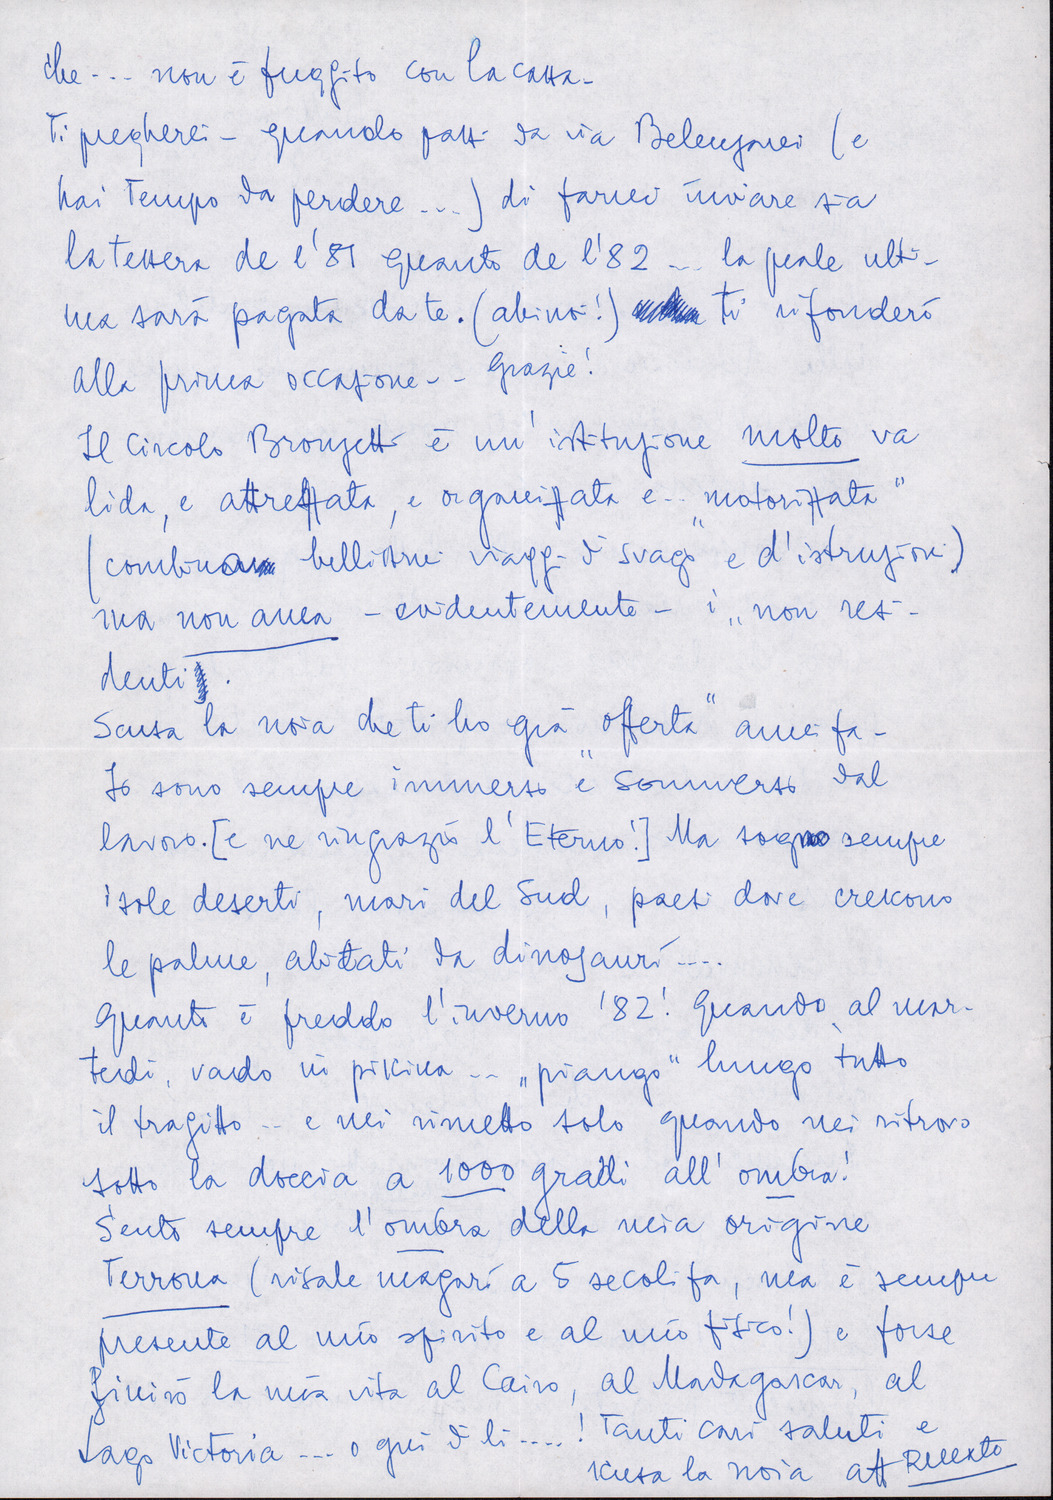 che --- non è fuggito con la cassa -
Ti pregherei - quando passi da via Belenzani (e
hai tempo da perdere ...) di farmi inviare sia
la tessera de l'81 quanto de l'82 ... la quale ulti-
ma sarà pagata da te. (ahimè!) ti rifonderò
alla prima occasione -- Grazie!
Il Circolo Bronzetti è un'istituzione molto va
lida, e attrezzata, e organizzata e.. "motorizzata"
(combina bellissimi viaggi di "svago" e d'istruzione)
ma non ama - evidentemente - i „non resi-
denti .
Scusa la noia che ti ho già "offerta" anni fa -
Io sono sempre immerso e sommerso dal
lavoro. [e ne ringrazio l'Eterno!] Ma sogno sempre
isole deserti, mari del Sud, paesi dove crescono
le palme, abitati da dinosauri ....
Quanto è freddo l'inverno '82! Quando, al mar-
tedì, vado in piscina -- „piango" lungo tutto
il tragitto -- e mi rimetto solo quando mi ritrovo
sotto la doccia a 1000 gradi all'ombra!
Sento sempre l'ombra della mia origine
Terrona (risale magari a 5 secoli fa, ma è sempre
presente al mio spirito e al mio fisico!) e forse
finirò la mia vita al Cairo, al Madagascar, al
Lago Victoria ... o qui di lì ....! Tanti cari saluti e
scusa la noia aff